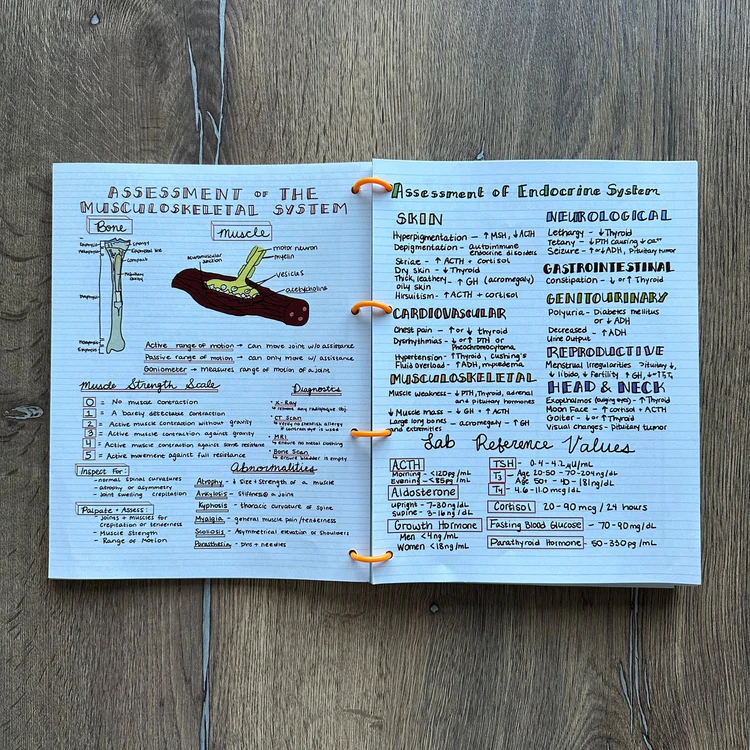 ASSESSMENT OF THE
MUSCULOSKELETAL SYSTEM
Bone
Muscle
compact
neuromuscular
junction
motor neuron
myelin
vesicles
acetylcholine
Active range of motion → can move joint w/o assistance
Passive range of motion → can only move w/ assistance
Goniometer → measures range of motion of a joint
Muscle Strength Scale
0 = No muscle contraction
1 = A barely detectable contraction
2 = Active muscle contraction without gravity
3 = Active muscle contraction against gravity
4 = Active muscle contraction against some resistance
5 = Active movement against full resistance
Diagnostics
X-Ray
↳ remove any radiopaque obj.
CT Scan
↳ verify no shellfish allergy
if contrast dye is used
MRI
↳ ensure no metal clothing
Bone Scan
↳ ensure bladder is empty
Inspect For:
- normal spinal curvatures
- atrophy or asymmetry
- Joint swelling crepitation
Palpate + Assess:
- Joints + muscles for
crepitation or tenderness
- Muscle strength
- Range of Motion
Abnormalities
Atrophy - ↓ size + strength of a muscle
Ankylosis - stiffness @ a joint
Kyphosis - thoracic curvature of spine
Myalgia - general muscle pain/tenderness
Scoliosis - Asymmetrical elevation of shoulders
Paresthesia - pins + needles
Assessment of Endocrine System
SKIN
Hyperpigmentation - ↑ MSH, ↓ ACTH
Depigmentation - autoimmune
endocrine disorders
Striae - ↑ ACTH + cortisol
Dry skin - ↓ Thyroid
Thick, leathery, oily skin - ↑ GH (acromegaly)
Hirsuitism - ↑ ACTH + cortisol
CARDIOVASCULAR
Chest pain - ↑ or ↓ thyroid
Dysrhythmias - ↓ or ↑ PTH or
Pheochromocytoma
Hypertension - ↑ Thyroid, Cushing's
Fluid overload - ↑ ADH, myxedema
MUSCULOSKELETAL
Muscle weakness - ↓ PTH, Thyroid, adrenal
and pituitary hormones
↓ Muscle mass - ↓ GH + ↑ ACTH
Large long bones
and extremities - acromegaly - ↑ GH
NEUROLOGICAL
Lethargy - ↓ Thyroid
Tetany - ↓ PTH causing ↓ Ca²⁺
Seizure - ↑ or ↓ ADH, Pituitary tumor
GASTROINTESTINAL
Constipation - ↓ or ↑ Thyroid
GENITOURINARY
Polyuria - Diabetes mellitus
or ↓ ADH
Decreased
Urine Output - ↑ ADH
REPRODUCTIVE
Menstrual irregularities
↓ libido, ↓ Fertility
HEAD & NECK
Exopthalmos (bulging eyes) - ↑ Thyroid
Moon Face - ↑ cortisol + ACTH
Goiter - ↓ or ↑ Thyroid
Visual changes - Pituitary tumor
Lab Reference Values
ACTH
Morning - <120 pg/mL
Evening - <85 pg/mL
Aldosterone
upright - 7-30 ng/dL
supine - 3-16 ng/dL
Growth Hormone
Men <4 ng/mL
Women <18 ng/mL
TSH - 0.4-4.2 μU/mL
T3 - Age 20-50 - 70-204 ng/dL
Age 50+ - 40-181 ng/dL
T4 - 4.6-11.0 mcg/dL
Cortisol 20-90 mcg / 24 hours
Fasting Blood Glucose - 70-90 mg/dL
Parathyroid Hormone - 50-330 pg/mL